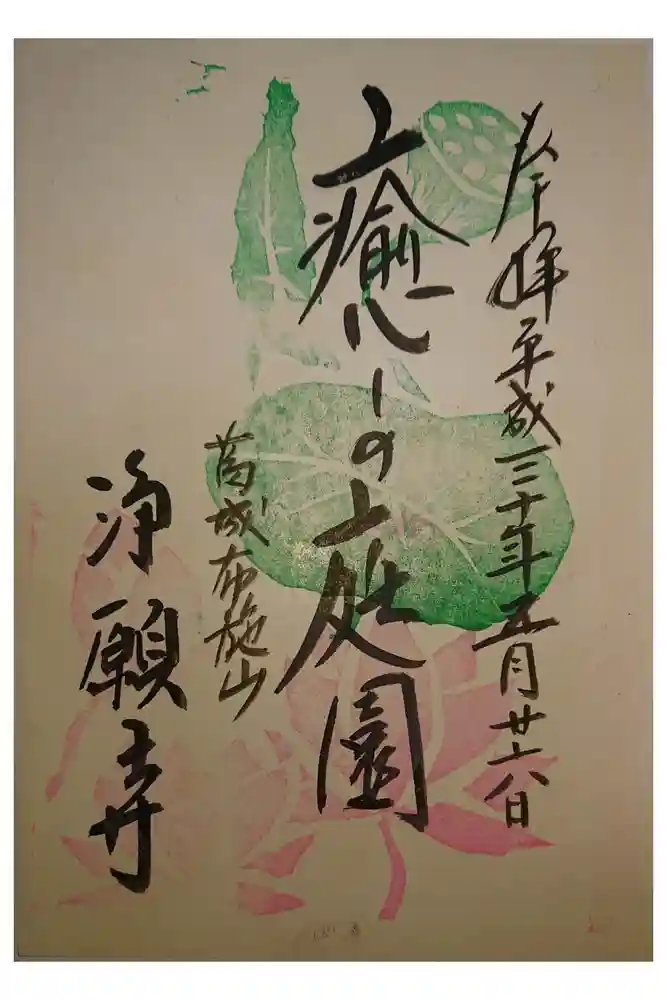 奉拝 平成三十年五月廿六日
癒しの庭園
葛城布施山
浄願寺